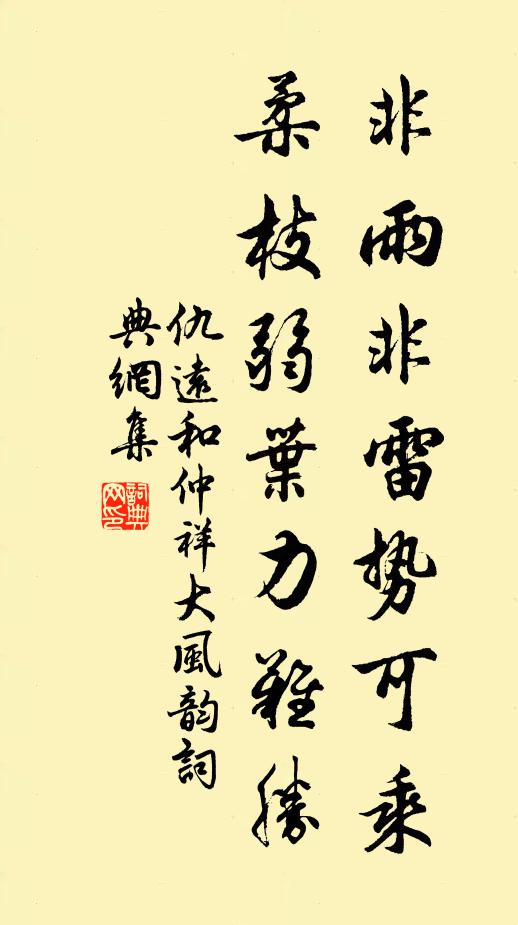 非雨非雷势可乘
柔枝弱葉力難勝
仇遠和仲祥大風韵詞
典網集
詞典
网印